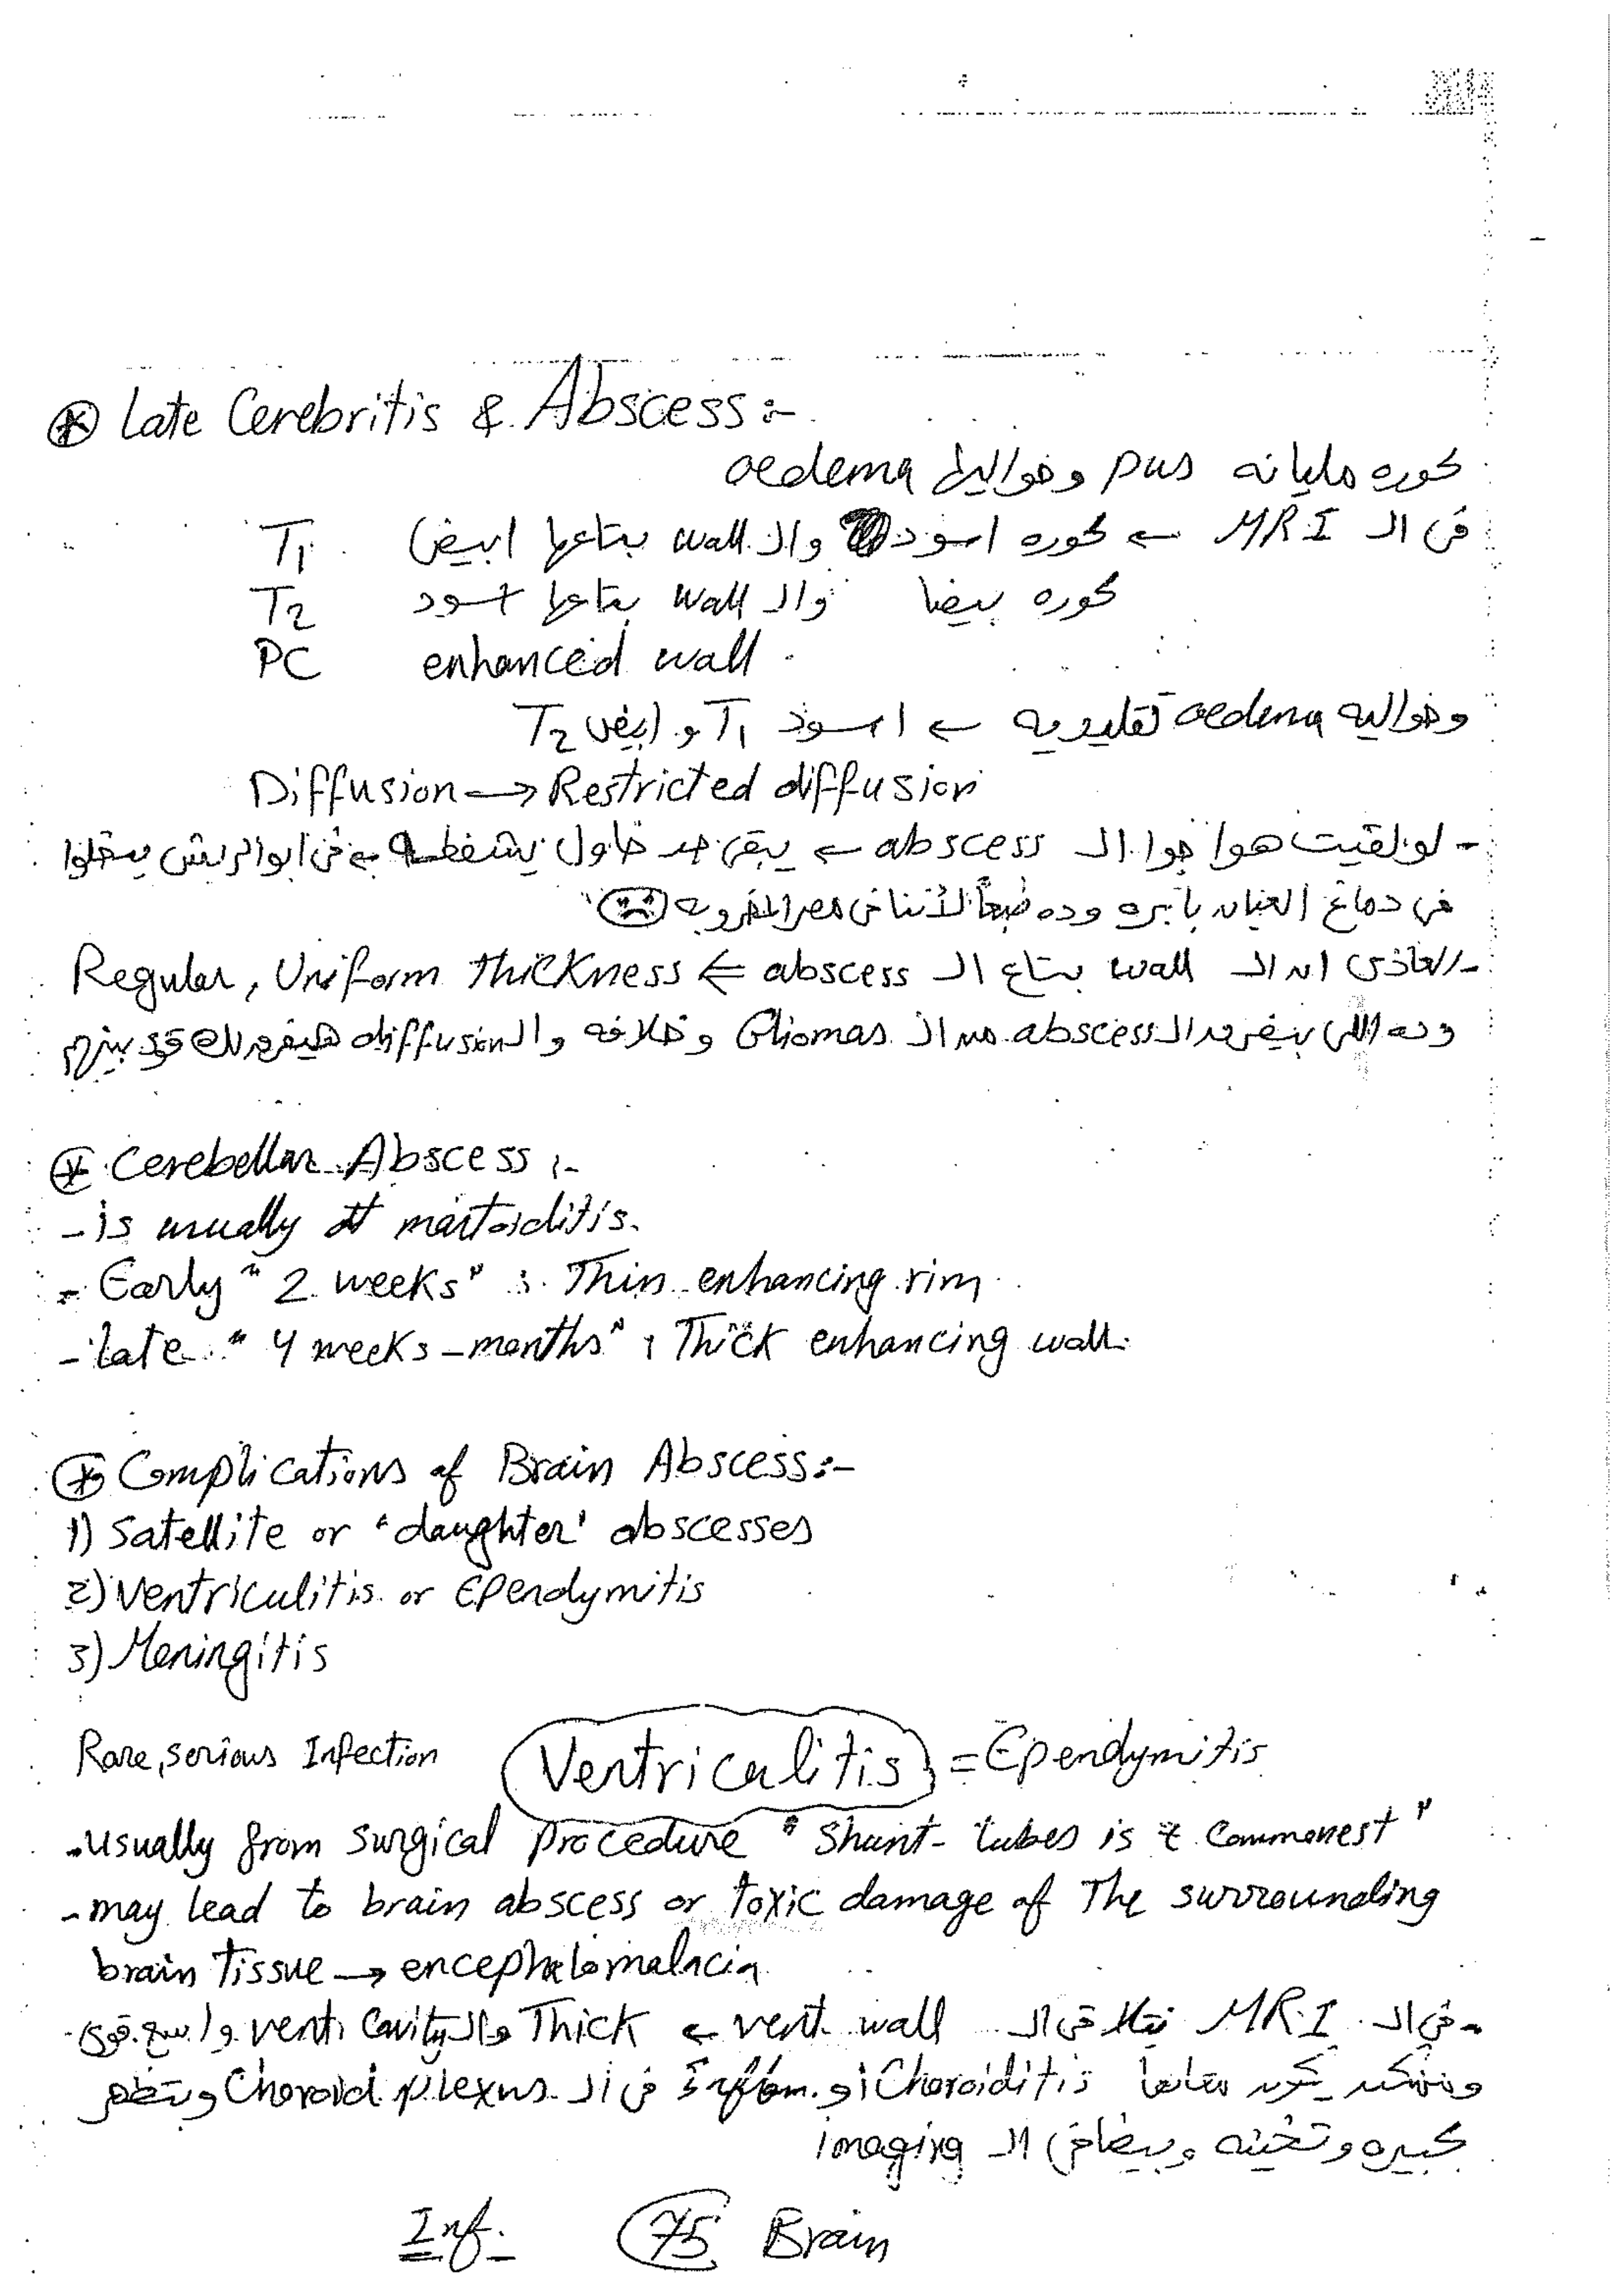 ⊛ Late Cerebritis & Abscess :-
كوره مليانه pus وحواليها oedema
فى الـ MRI ← كوره اسود والـ wall بتاعها ابيض T1
كوره بيضا والـ wall بتاعها اسود T2
PC enhanced wall
وحواليه oedema تقليديه ← اسود T1 و ابيض T2
Diffusion → Restricted diffusion
- لو لقيت هوا جوا الـ abscess ← يبقى حد حاول يشفطه ← فى ابو الريش بيدخلوا
فى دماغ العيان بابره وده طبعاً لأننا فى مصر المحروسه
- العادى ان الـ wall بتاع الـ abscess ⇐ Regular, Uniform thickness
وده اللى بيفرق الـ abscess من الـ Gliomas وخلافه والـ diffusion هيفرقلك
⊛ Cerebellar Abscess :-
- is usually mastoiditis.
- Early "2 weeks" : Thin enhancing rim
- late "4 weeks - months" : Thick enhancing wall.
⊛ Complications of Brain Abscess :-
1) Satellite or 'daughter' abscesses
2) Ventriculitis or Ependymitis
3) Meningitis
Rare, serious Infection Ventriculitis = Ependymitis
- usually from surgical procedure "Shunt-tubes is commonest"
- may lead to brain abscess or toxic damage of The surrounding
brain tissue → encephalomalacia
- فى الـ MRI تلاقى الـ vent wall ← Thick والـ vent Cavity واسع قوى
وممكن يكون معاها Choroiditis أو Inflam. فى الـ Choroid plexus وتظهر
كبيره وتخينه وبيضا فى الـ imaging
Inf. 75 Brain